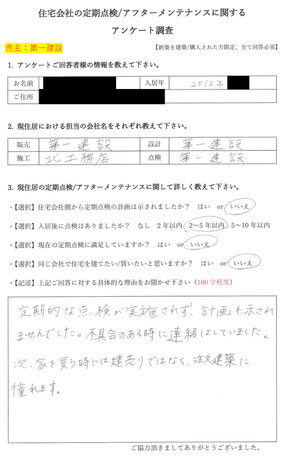 住宅会社の定期点検/アフターメンテナンスに関する
アンケート調査
売主：第一建設
【新築を建築/購入された方限定、全て回答必須】
1. アンケートご回答者様の情報を教えて下さい。
お名前 入居年 2012年
ご住所
2. 現住居における担当の会社名をそれぞれ教えて下さい。
販売 第一建設 設計 第一建設
施工 北工務店 点検 第一建設
3. 現住居の定期点検/アフターメンテナンスに関して詳しく教えて下さい。
・【選択】住宅会社側から定期点検の計画は示されましたか？ はい or いいえ
・【選択】入居後に点検はありましたか？ なし 2年以内 2～5年以内 5～10年以内
・【選択】現在の定期点検に満足していますか？ はい or いいえ
・【選択】同じ会社で住宅を建てたい/買いたいと思いますか？ はい or いいえ
・【記述】上記ご回答に対する具体的な理由をお聞かせ下さい（100字程度）
定期的な点検が実施されず、計画も示され
ませんでした。不具合のある時に連絡はしていました。
次、家を買う時には建売りではなく、注文建築に
憧れます。
ご協力頂きましてありがとうございました。